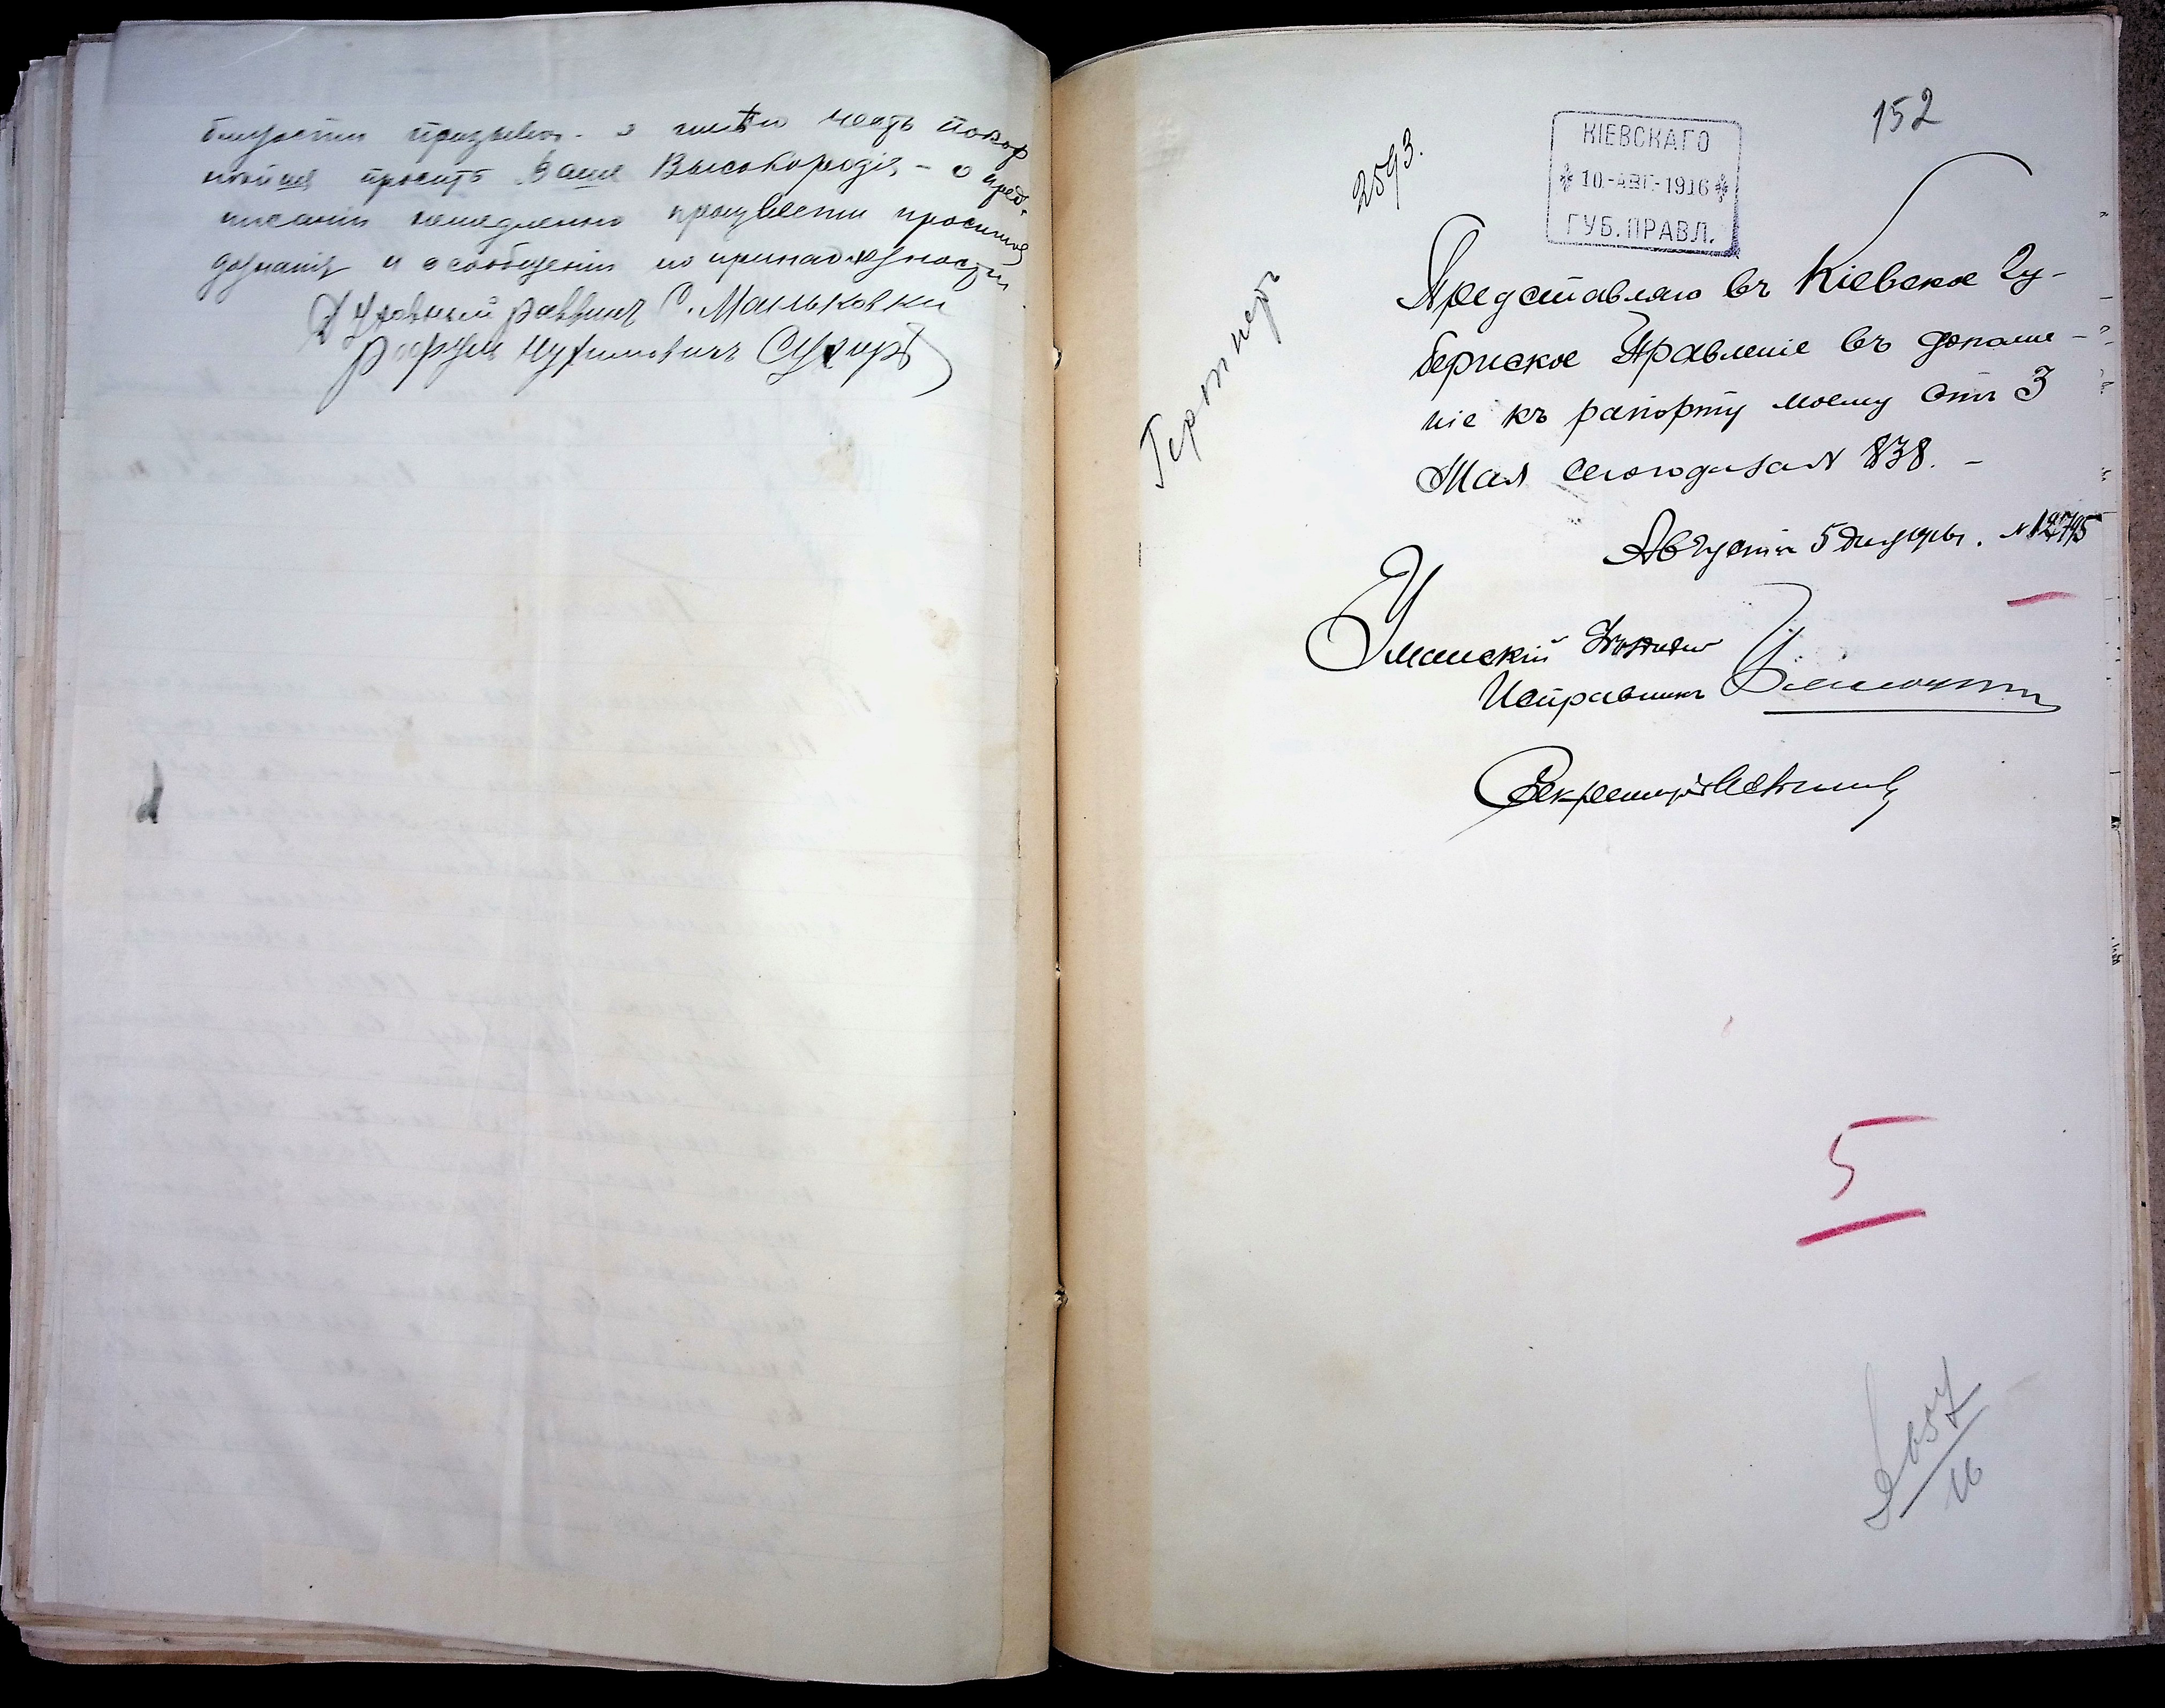 призывъ - я имѣю честь покор
нѣйше просить Ваше Высокородіе - о пред-
писаніи немедленно произвести просимое
дознаніе и о сообщеніи по принадлежности.
Духовный раввинъ С. Мальковки
Рафулъ Нухимовичъ Сухеръ
152
2593.
КІЕВСКАГО
10.-АВГ.-1916
ГУБ.ПРАВЛ.
Гертнеръ
Представляю въ Кіевское Гу-
бернское Правленіе въ дополне-
ніе къ рапорту моему отъ 3
Мая сего года за № 838. -
Августа 5 дня 1916г. № 12795
Уманскій Уѣздный
Исправникъ
Секретарь
5
1657
16